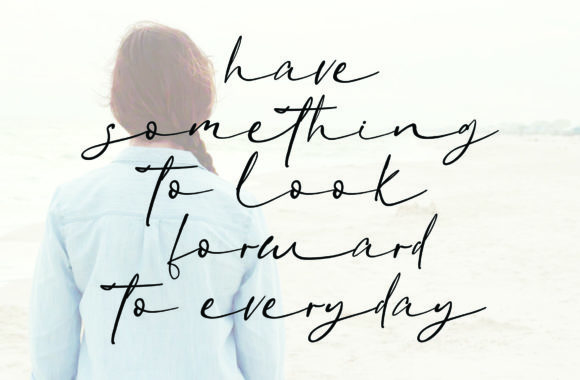 have
something
to look
forward
to everyday